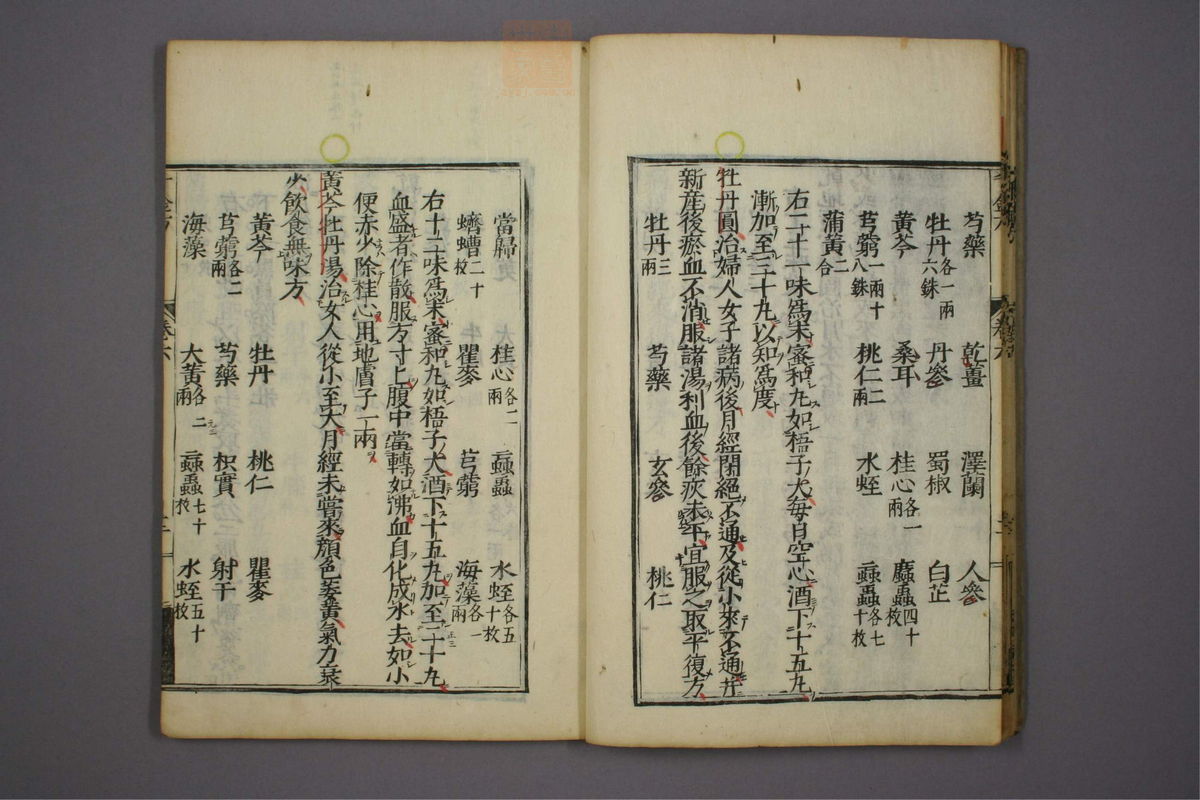 芍藥 乾薑 澤蘭 人參
牡丹各一兩六銖 丹參 蜀椒 白芷
黃芩 桑耳 桂心各一兩 䗪蟲四十枚
芎藭一兩十八銖 桃仁二兩 水蛭 蝱蟲各七十枚
蒲黃二合
右二十一味爲末蜜和丸如梧子大每日空心酒下十五丸
漸加至三十丸以知爲度
牡丹圓治婦人女子諸病後月經閉絕不通及從小來不通并
新産後瘀血不消服諸湯利血後餘疢未平宜服之取平復方
牡丹三兩 芍藥 玄參 桃仁
當歸 桂心各二兩 蝱蟲 水蛭各五十枚
蠐螬二十枚 瞿麥 芎藭 海藻各一兩
右十二味爲末蜜和丸如梧子大酒下十五丸加至二十丸
血盛者作散服方寸匕腹中當轉如沸血自化成水去如小
便赤少除桂心用地膚子一兩
黃芩牡丹湯治女人從小至大月經未嘗來顏色萎黃氣力衰
少飲食無味方
黃芩 牡丹 桃仁 瞿麥
芎藭各二兩 芍藥 枳實 射干
海藻 大黃各二兩 蝱蟲七十枚 水蛭五十枚
卷六